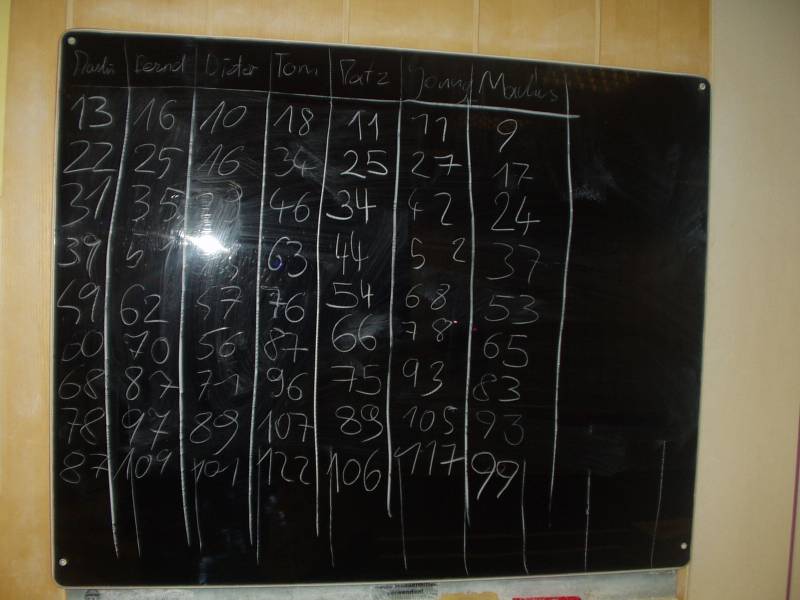 Bernd Dieter Tom Ratz Jonny Markus
13 16 10 18 11 11 9
22 25 16 34 25 27 17
31 35 46 34 42 24
39 63 44 52 37
49 62 47 76 54 68 53
60 70 56 87 66 78 65
68 87 71 96 75 93 83
78 97 89 107 89 105 93
87 109 101 122 106 117 99